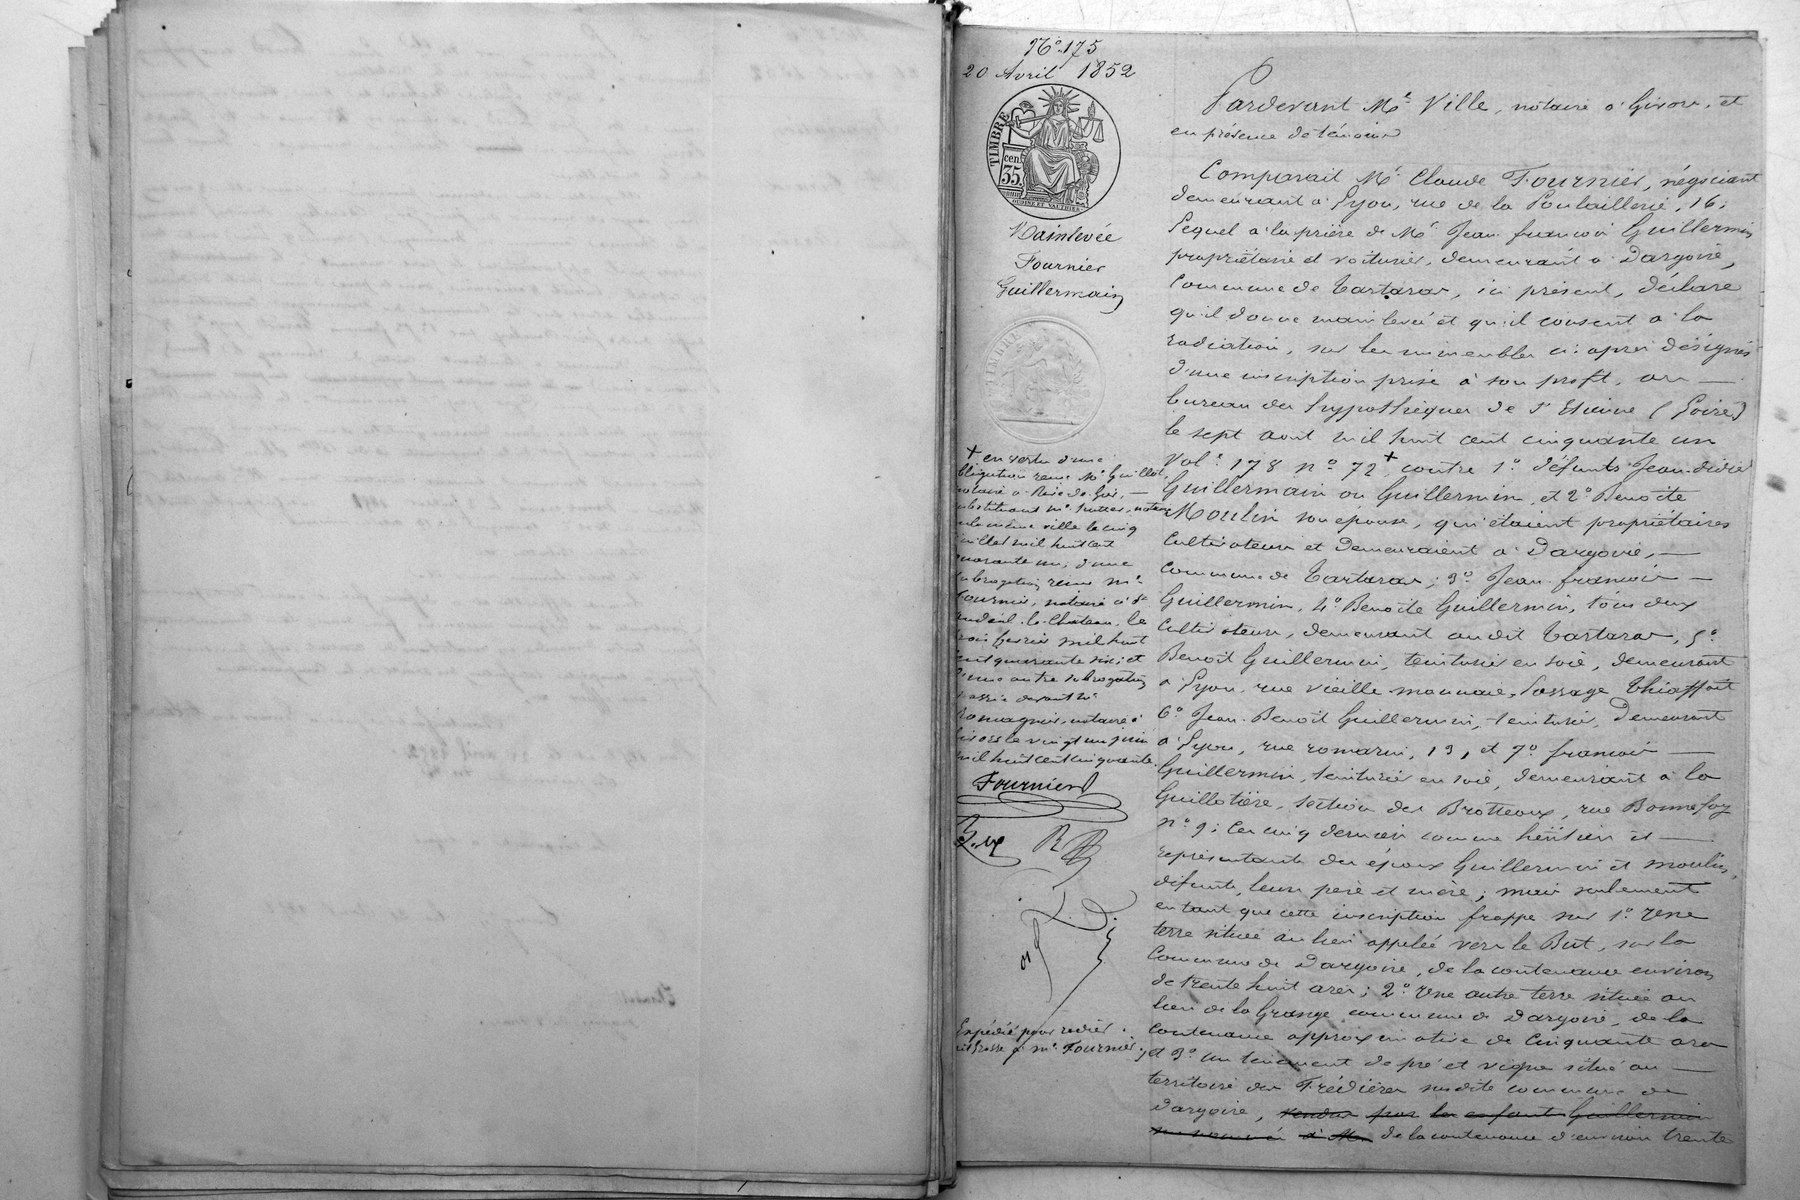 N° 175
20 Avril 1852
TIMBRE
cen.
35.
OUDINE ET VAUTHIER
Mainlevée
Fournier
Guillermain
TIMBRE
+ en vertu d'une
obligation reçue Me Guillot,
notaire à Rive-de-Gier, —
substituant Me notaire
en la même ville le cinq
juillet mil huit cent
quarante un; d'une
subrogation reçue Me
Fournier, notaire à St
Andéol-le-Château, le
trois février mil huit
cent quarante six; et
d'une autre subrogation
passée devant Me
Romagnier, notaire à
Givors le vingt un juin
mil huit cent cinquante.
Fournier
Expédié pour radier.
et Grosse p. Mr Fournier;
Pardevant Me Ville, notaire à Givors, et
en présence de témoins
Comparait Mr Claude Fournier, négociant
demeurant à Lyon, rue de la Poulaillerie, 16;
Lequel à la prière de Mr Jean-françois Guillermin
propriétaire et voiturier, demeurant à Dargoire,
commune de Tartaras, ici présent, déclare
qu'il donne mainlevée et qu'il consent à la
radiation, sur les immeubles ci-après désignés
d'une inscription prise à son profit, au —
bureau des hypothèques de St Etienne (Loire)
le sept aout mil huit cent cinquante un
Vol. 178 n° 72 + contre 1° défunts Jean-didier
Guillermain ou Guillermin, et 2° Benoîte
Moulin son épouse, qui étaient propriétaires
cultivateurs et demeuraient à Dargoire, —
commune de Tartaras; 3° Jean-françois —
Guillermin, 4° Benoîte Guillermin, tous deux
cultivateurs, demeurant audit Tartaras, 5°
Benoît Guillermin, teinturier en soie, demeurant
à Lyon, rue vieille-monnaie, Passage Thiaffait
6° Jean-Benoît Guillermin, teinturier, demeurant
à Lyon, rue romarin, 13, et 7° françois —
Guillermin, teinturier en soie, demeurant à la
Guillotière, section des Brotteaux, rue Bonnefoy
n° 9; les cinq derniers comme héritiers et —
représentants des époux Guillermin et moulin,
défunts, leurs père et mère; mais seulement
en tant que cette inscription frappe sur 1° Une
terre située au lieu appelée vers le But, sur la
commune de Dargoire, de la contenance environ
de trente huit ares; 2° Une autre terre située au
lieu de la Grange commune de Dargoire, de la
contenance approximative de cinquante ares
et 3° un tenement de pré et vigne situé au —
territoire des Frédières susdite commune de
Dargoire, vendus par les enfants Guillermin
de la contenance d'environ trente